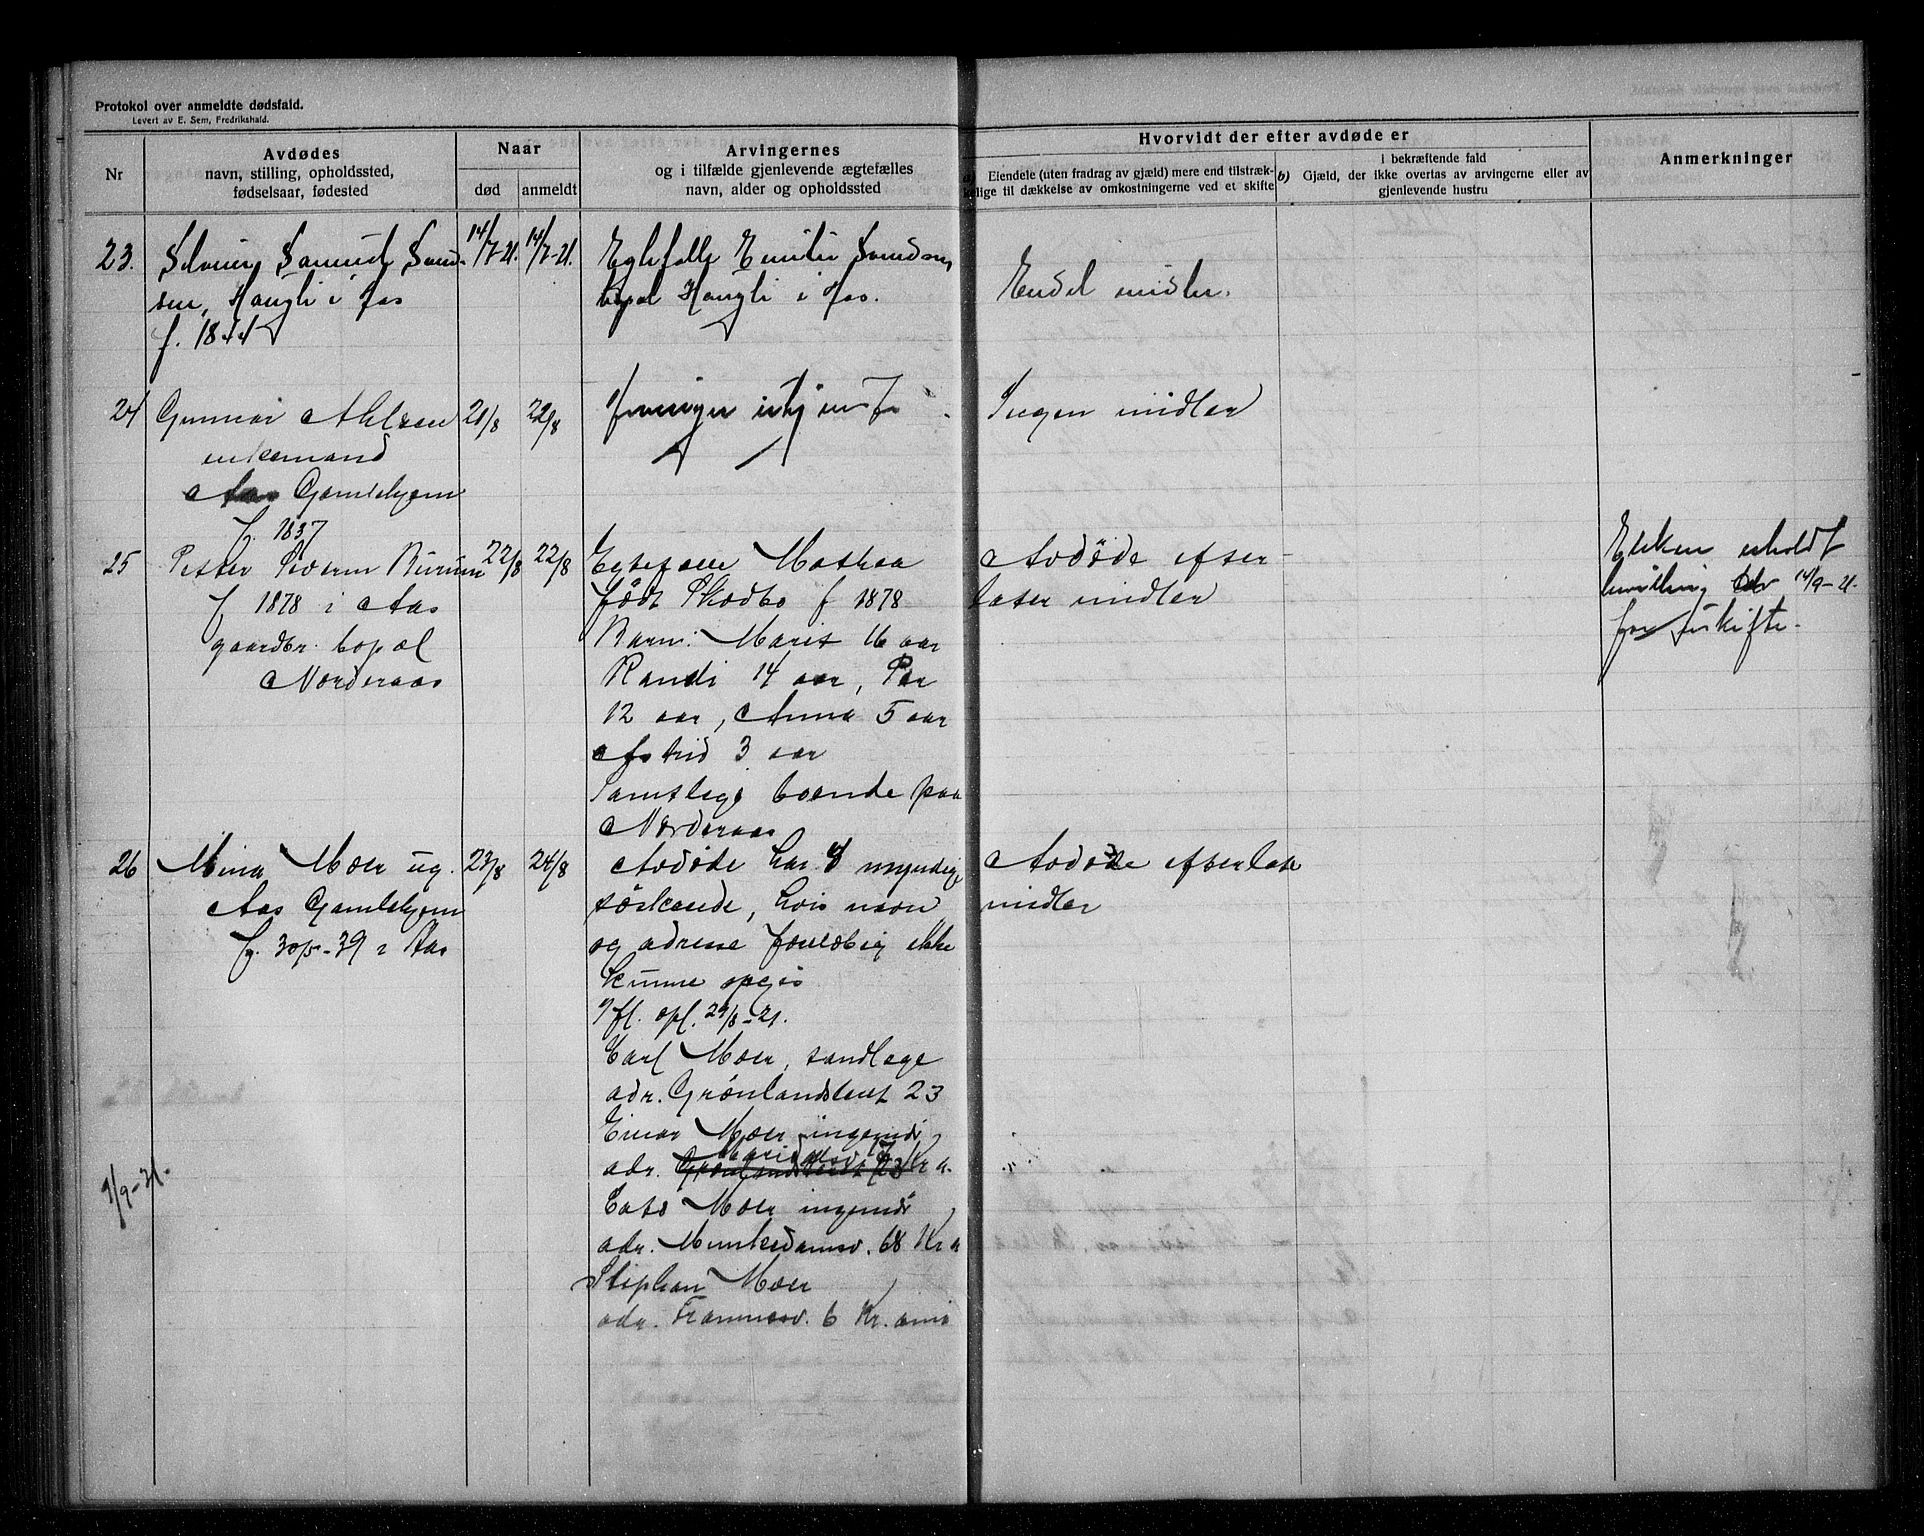 Protokol over anmeldte dødsfald.
Levert av E. Sem, Fredrikshald.
Nr
Avdødes
navn, stilling, opholdssted,
fødselsaar, fødested
Naar
død
anmeldt
Arvingernes
og i tilfælde gjenlevende ægtefælles
navn, alder og opholdssted
Hvorvidt der efter avdøde er
a) Eiendele (uten fradrag av gjæld) mere end tilstræk-
kelige til dækkelse av omkostningerne ved et skifte
i bekræftende fald
b) Gjæld, der ikke overtas av arvingerne eller av
gjenlevende hustru
Anmerkninger
23.
Samuel Svend-
sen, Haugli i Aas
f. 1844
14/7-21.
14/7-21.
Egtefelle Emilie Svendsen,
bopæl Haugli i Aas.
Endel midler.
24
Gunnar Ahlsen
enkemand
Aas Gamlehjem
f. 1837
21/8
22/8
Arvinger
Ingen midler
25
Petter Severin Burum
f 1878 i Aas
gaardbr. bopæl
Norderaas
22/8
22/8
Egtefælle Mathea
født Skodbo f 1878
Barn: Marit 16 aar
Randi 14 aar, Per
12 aar, Anna 5 aar
Astrid 3 aar
Samtlige boende paa
Norderaas
Avdøde efter-
later midler
Enken erholdt
bevilling 14/9-21.
for uskifte.
26
Mina Moer ug.
Aas Gamlehjem
f. 30/5-39 i Aas
23/8
24/8
Avdøde har 4 myndige
søskende, hvis navn
og adresse foreløbig ikke
kunne opgis
Ifl. opl. 29/8-21.
Carl Moer, tandlæge
adr. Grønlandsleret 23
Einar Moer ingeniør
adr. Grønlandsleret 23 Kr a.
Moer ingeniør
adr. Munkedamsv. 68 Kr a
Stephan Moer
adr. Framnesv. 6 Kr.ania
Avdøde efterlater
midler
1/9-21.